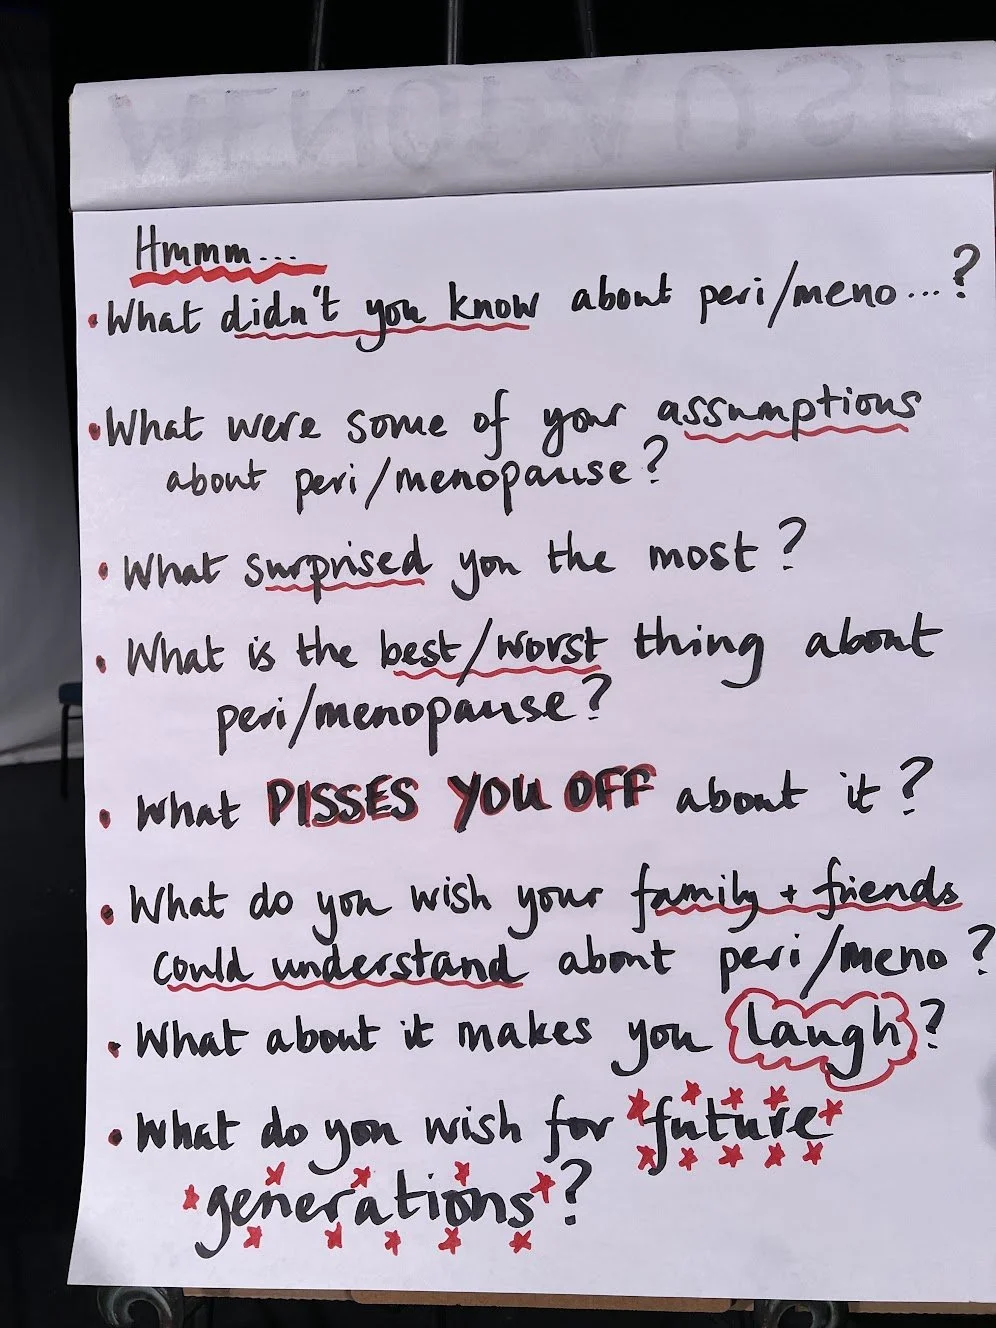 MENOPAUSE
Hmmm...
• What didn't you know about peri/meno...?
• What were some of your assumptions
about peri/menopause?
• What surprised you the most?
• What is the best/worst thing about
peri/menopause?
• What PISSES YOU OFF about it?
• What do you wish your family + friends
could understand about peri/meno?
• What about it makes you laugh?
• What do you wish for future
generations?